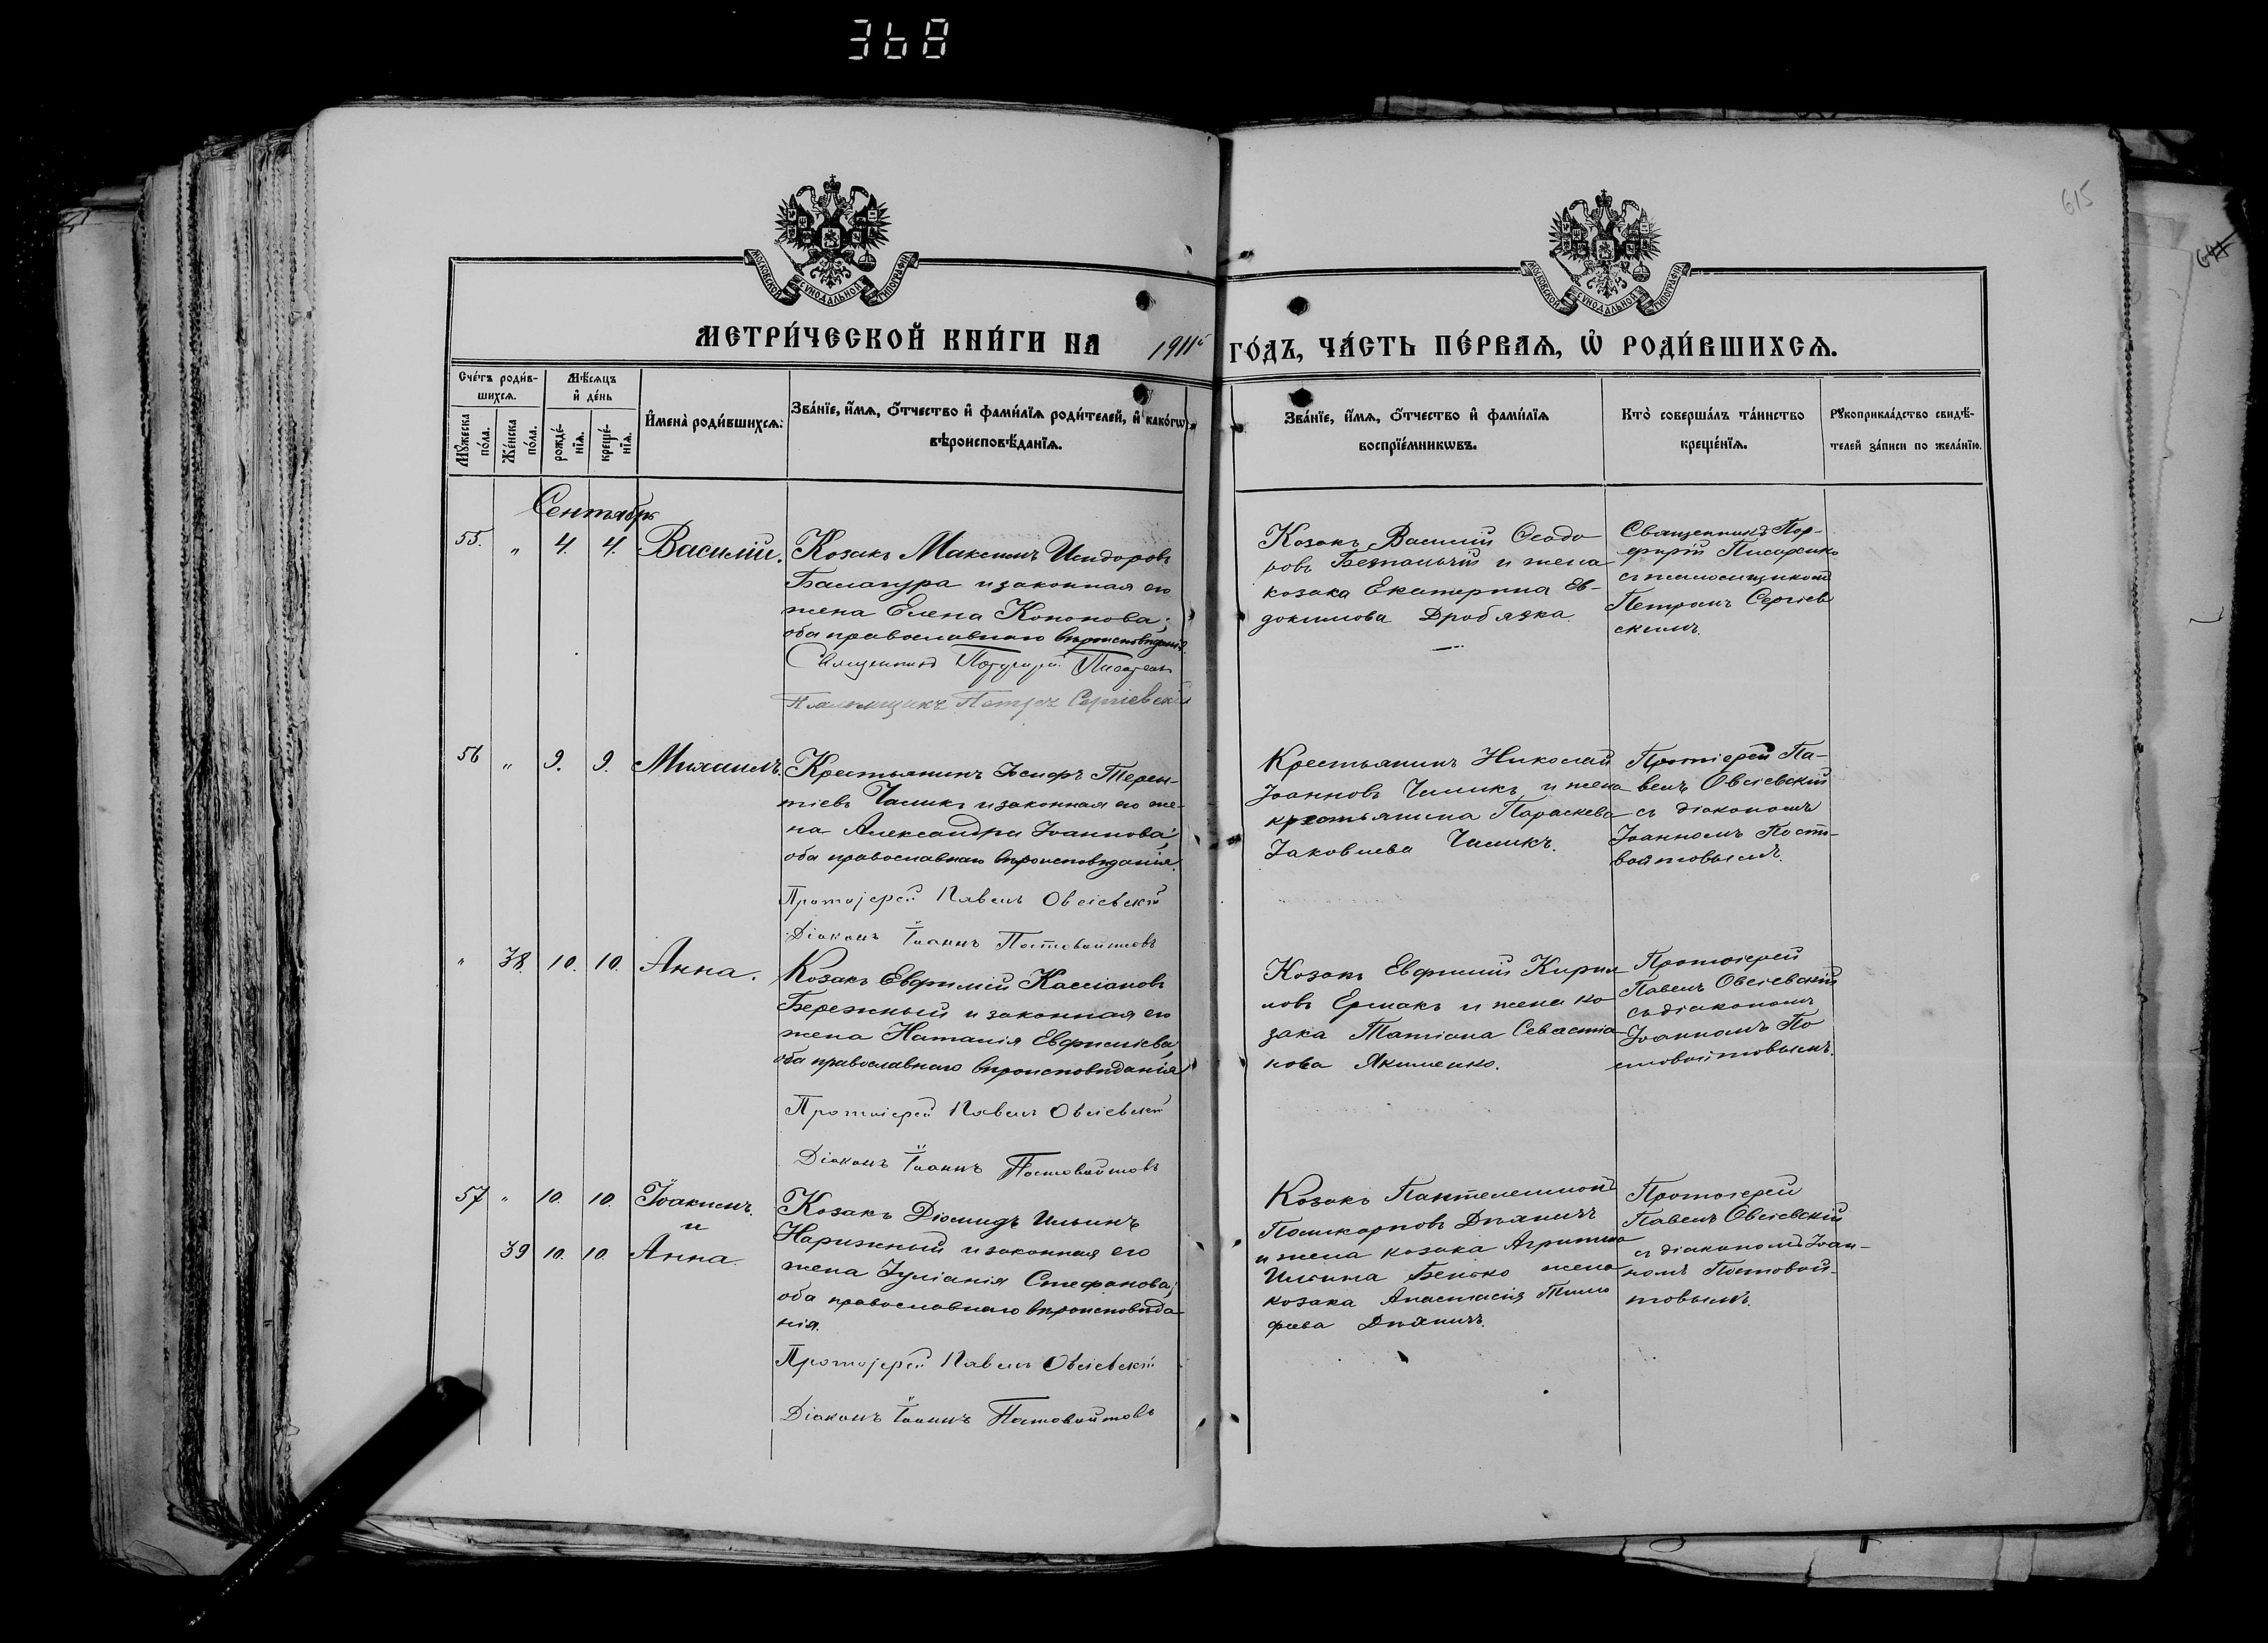 368
615
МОСКОВСКОЙ СѴНОДАЛЬНОЙ ТИПОГРАФІИ
МОСКОВСКОЙ СѴНОДАЛЬНОЙ ТИПОГРАФІИ
МЕТРИ́ЧЕСКОЙ КНИ́ГИ НА 1911й ГО́ДЪ, ЧА́СТЬ ПЕ́РВАѦ, Ѡ҆ РОДИ́ВШИХСѦ.
Сче́тъ роди́в-
шихсѧ.
Мꙋ́жеска по́ла.
Же́нска по́ла.
Мѣ́сѧцъ
и҆ де́нь
рожде́-
нїѧ.
креще́-
нїѧ.
И҆мена̀ роди́вшихсѧ:
Зва́нїе, и҆́мѧ, ѻ҆́тчество и҆ фами́лїѧ роди́телей, и҆ како́гѡ
вѣроисповѣ́данїѧ.
Зва́нїе, и҆́мѧ, ѻ҆́тчество и҆ фами́лїѧ
воспрїе́мникѡвъ.
Кто̀ соверша́лъ та́инство
креще́нїѧ.
Рꙋкоприкла́дство свидѣ́-
телей за́писи по жела́нїю.
Сентябрь
55. " 4. 4. Василій.
Козакъ Максимъ Исидоровъ
Балагура и законная его
жена Елена Кононова;
оба православнаго вѣроисповѣданія.
Священникъ Порфирій Писаренко
Псаломщикъ Петръ Сергіевскій
Козакъ Василій Ѳеодо
ровъ и жена
козака Екатерина Ев-
докимова Дробязка.
Священникъ Пор-
фирій Писаренко
съ псаломщикомъ
Петромъ Сергіев
скимъ.
56 " 9. 9. Михаилъ.
Крестьянинъ Іосифъ Терен-
тіевъ Чаликъ и законная его же-
на Александра Іоаннова;
оба православнаго вѣроисповѣданія.
Протоіерей Павелъ Овсіевскій
Діаконъ Іоаннъ Постовойтовъ
Крестьянинъ Николай
Іоанновъ Чаликъ и жена
крестьянина Параскева
Іаковлева Чаликъ.
Протіерей Па-
велъ Овсіевскій
съ діакономъ
Іоанномъ Посто-
войтовымъ.
" 38. 10. 10. Анна.
Козакъ Евфимій Кассіановъ
Бережный и законная его
жена Наталія Евфиміева,
оба православнаго вѣроисповѣданія
Протоіерей Павелъ Овсіевскій
Діаконъ Іоаннъ Постовойтовъ
Козакъ Евфимій Кирил
ловъ Ермакъ и жена ко
зака Татіана Севастіа
нова Якименко.
Протоіерей
Павелъ Овсіевскій
съ діакономъ
Іоанномъ По
стовойтовымъ.
57 " 10. 10. Іоакимъ.
и
39 10. 10. Анна.
Козакъ Діомидъ Ильинъ
Нарижный и законная его
жена Іуліанія Стефанова;
оба православнаго вѣроисповѣда
нія.
Протоіерей Павелъ Овсіевскій
Діаконъ Іоаннъ Постовойтовъ
Козакъ Пантелеимонъ
Поликарповъ
и жена козака Агриппина
Ильина жена
козака Анастасія Тимо
феева
Протоіерей
Павелъ Овсіевскій
съ діакономъ Іоан-
номъ Постовой-
товымъ.